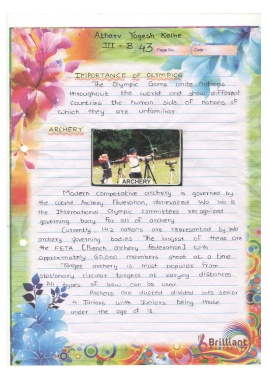 Atharv Yogesh Kolhe
III - B 43 Page No. Date
IMPORTANCE OF OLYMPICS
The Olympic Game unite Nations
throughout the world and show different
countries the human side of nations of
which they are unfamiliar.
ARCHERY
ARCHERY
Modern competative archery is governed by
the world Archery Fedreation, abbreviated WA. WA is
the International Olympic Committees recognized
governing body for all of archery.
Currently 142 nations are represented by WA
archery governing bodies. The largest of these are
the FETA [French archery federation] with
approximately 60,000 members shoot at a time.
Target archery is most popular from
stationary circular targets at varying distances.
All types of bow can be used.
Archers are divided into senior
& Juniors with Juniors being those
under the age of 18.
Brilliant